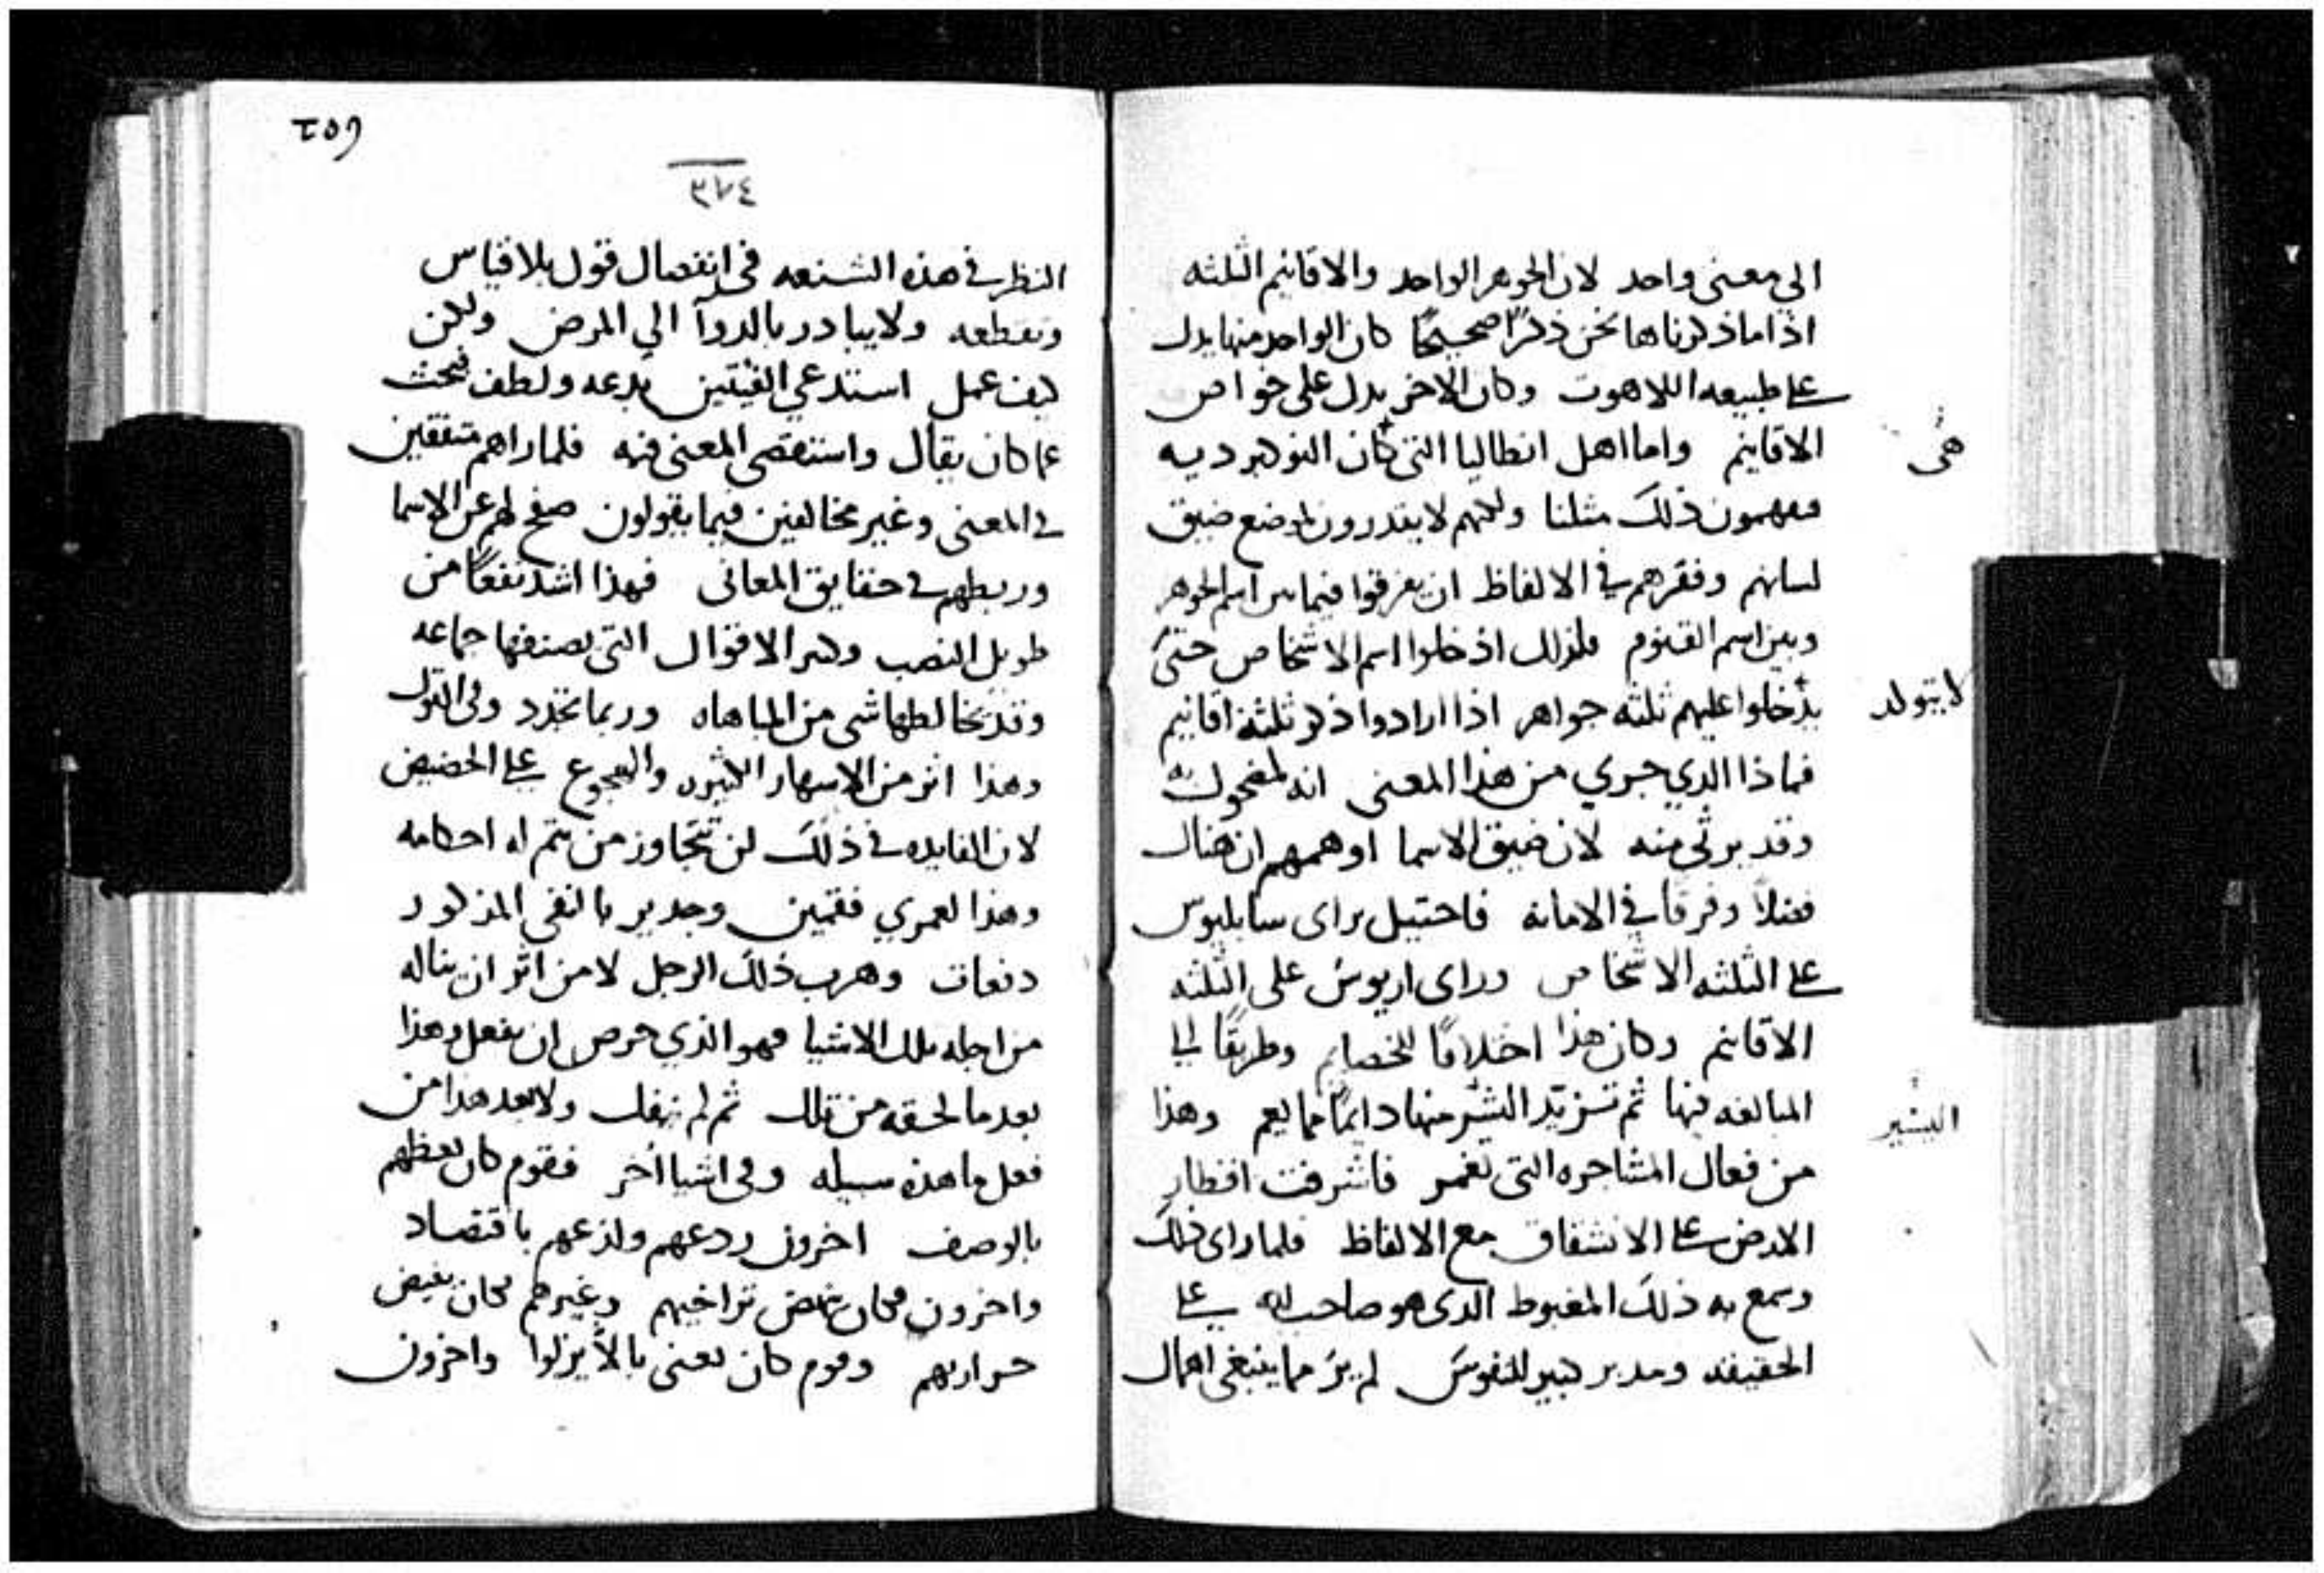 الي معنى واحد لان الجوهر الواحد والاقانيم الثلثه
اذا ما ذكرناها نحن ذكرًا صحيحًا كان الواحد منها يدل
على طبيعه اللاهوت وكان الاخر يدل على خواص
الاقانيم واما اهل انطاليا التى كان
هى
ذلك مثلنا ولكنهم لا يقدرون لموضع ضيق
لسانهم وفقرهم في الالفاظ ان يفرقوا فيما بين اسم الجوهر
وبين اسم القنوم فلذلك ادخلوا اسم الاشخاص حتى
يدخلوا عليهم ثلثه جواهر اذا ارادوا ذكر ثلثة اقانيم
فماذا الدي جري من هذا المعنى انه لمضحوك به
وقد يرثى منه لان ضيق الاسما اوهمهم ان هناك
فصلا وفرقا في الامانه فاحتيل براى سابليوس
على الثلثه الاشخاص وراى اريوس على الثلثه
الاقانيم وكان هذا وطريقًا الى
المبالغه فيها ثم تزيد منها دايمًا وهذا
من فعال المشاجره التى فاشرفت اقطار
الارض على الانشقاق مع الالفاظ فلما راى ذلك
وسمع به ذلك المغبوط الدى هو صاحب لله على
الحقيقه ومدبر كبير للنفوس لم ير مما ينبغى اهمال
٣٧٤
النظر في هذه الشنعه فى انفصال قول بلا قياس
وتقطعه ولا يبادر بالدوآ الي المرض ولكن
كيف عمل استدعي الفيتين بدعه ولطف فبحث
عما كان يقال واستقصى المعنى فيه فلما راهم متفقين
في المعنى وغير مخالفين فيما يقولون صفح لهم عن الاسما
وربطهم في حقايق المعانى فهذا اشد نفعًا من
طويل النصب الاقوال التى يصنفها جماعه
وقد يخالطها شى من المباهاه وربما تجدد وفى القول
وهذا اثر من الاسهار الكثيره على الحضيض
لان الفايده في ذلك لن تتجاوز من احكامه
وهذا لعمري فقمين وجدير بالنفى المذكور
دفعات وهرب ذلك الرجل لا من اثر ان يناله
من اجله تلك الاشيا فهو الذي حرص ان يفعل وهذا
بعد ما لحقه من تلك ثم لم ولا بعد هدا من
فعل ما هذه سبيله وفى اشيا أخر فقوم كان يعظهم
بالوصف اخرون ردعهم ولذعهم باقتصاد
واخرون فكان تراخيهم وغيرهم فكان
حرارتهم وقوم كان يعنى بالا يزلوا واخرون